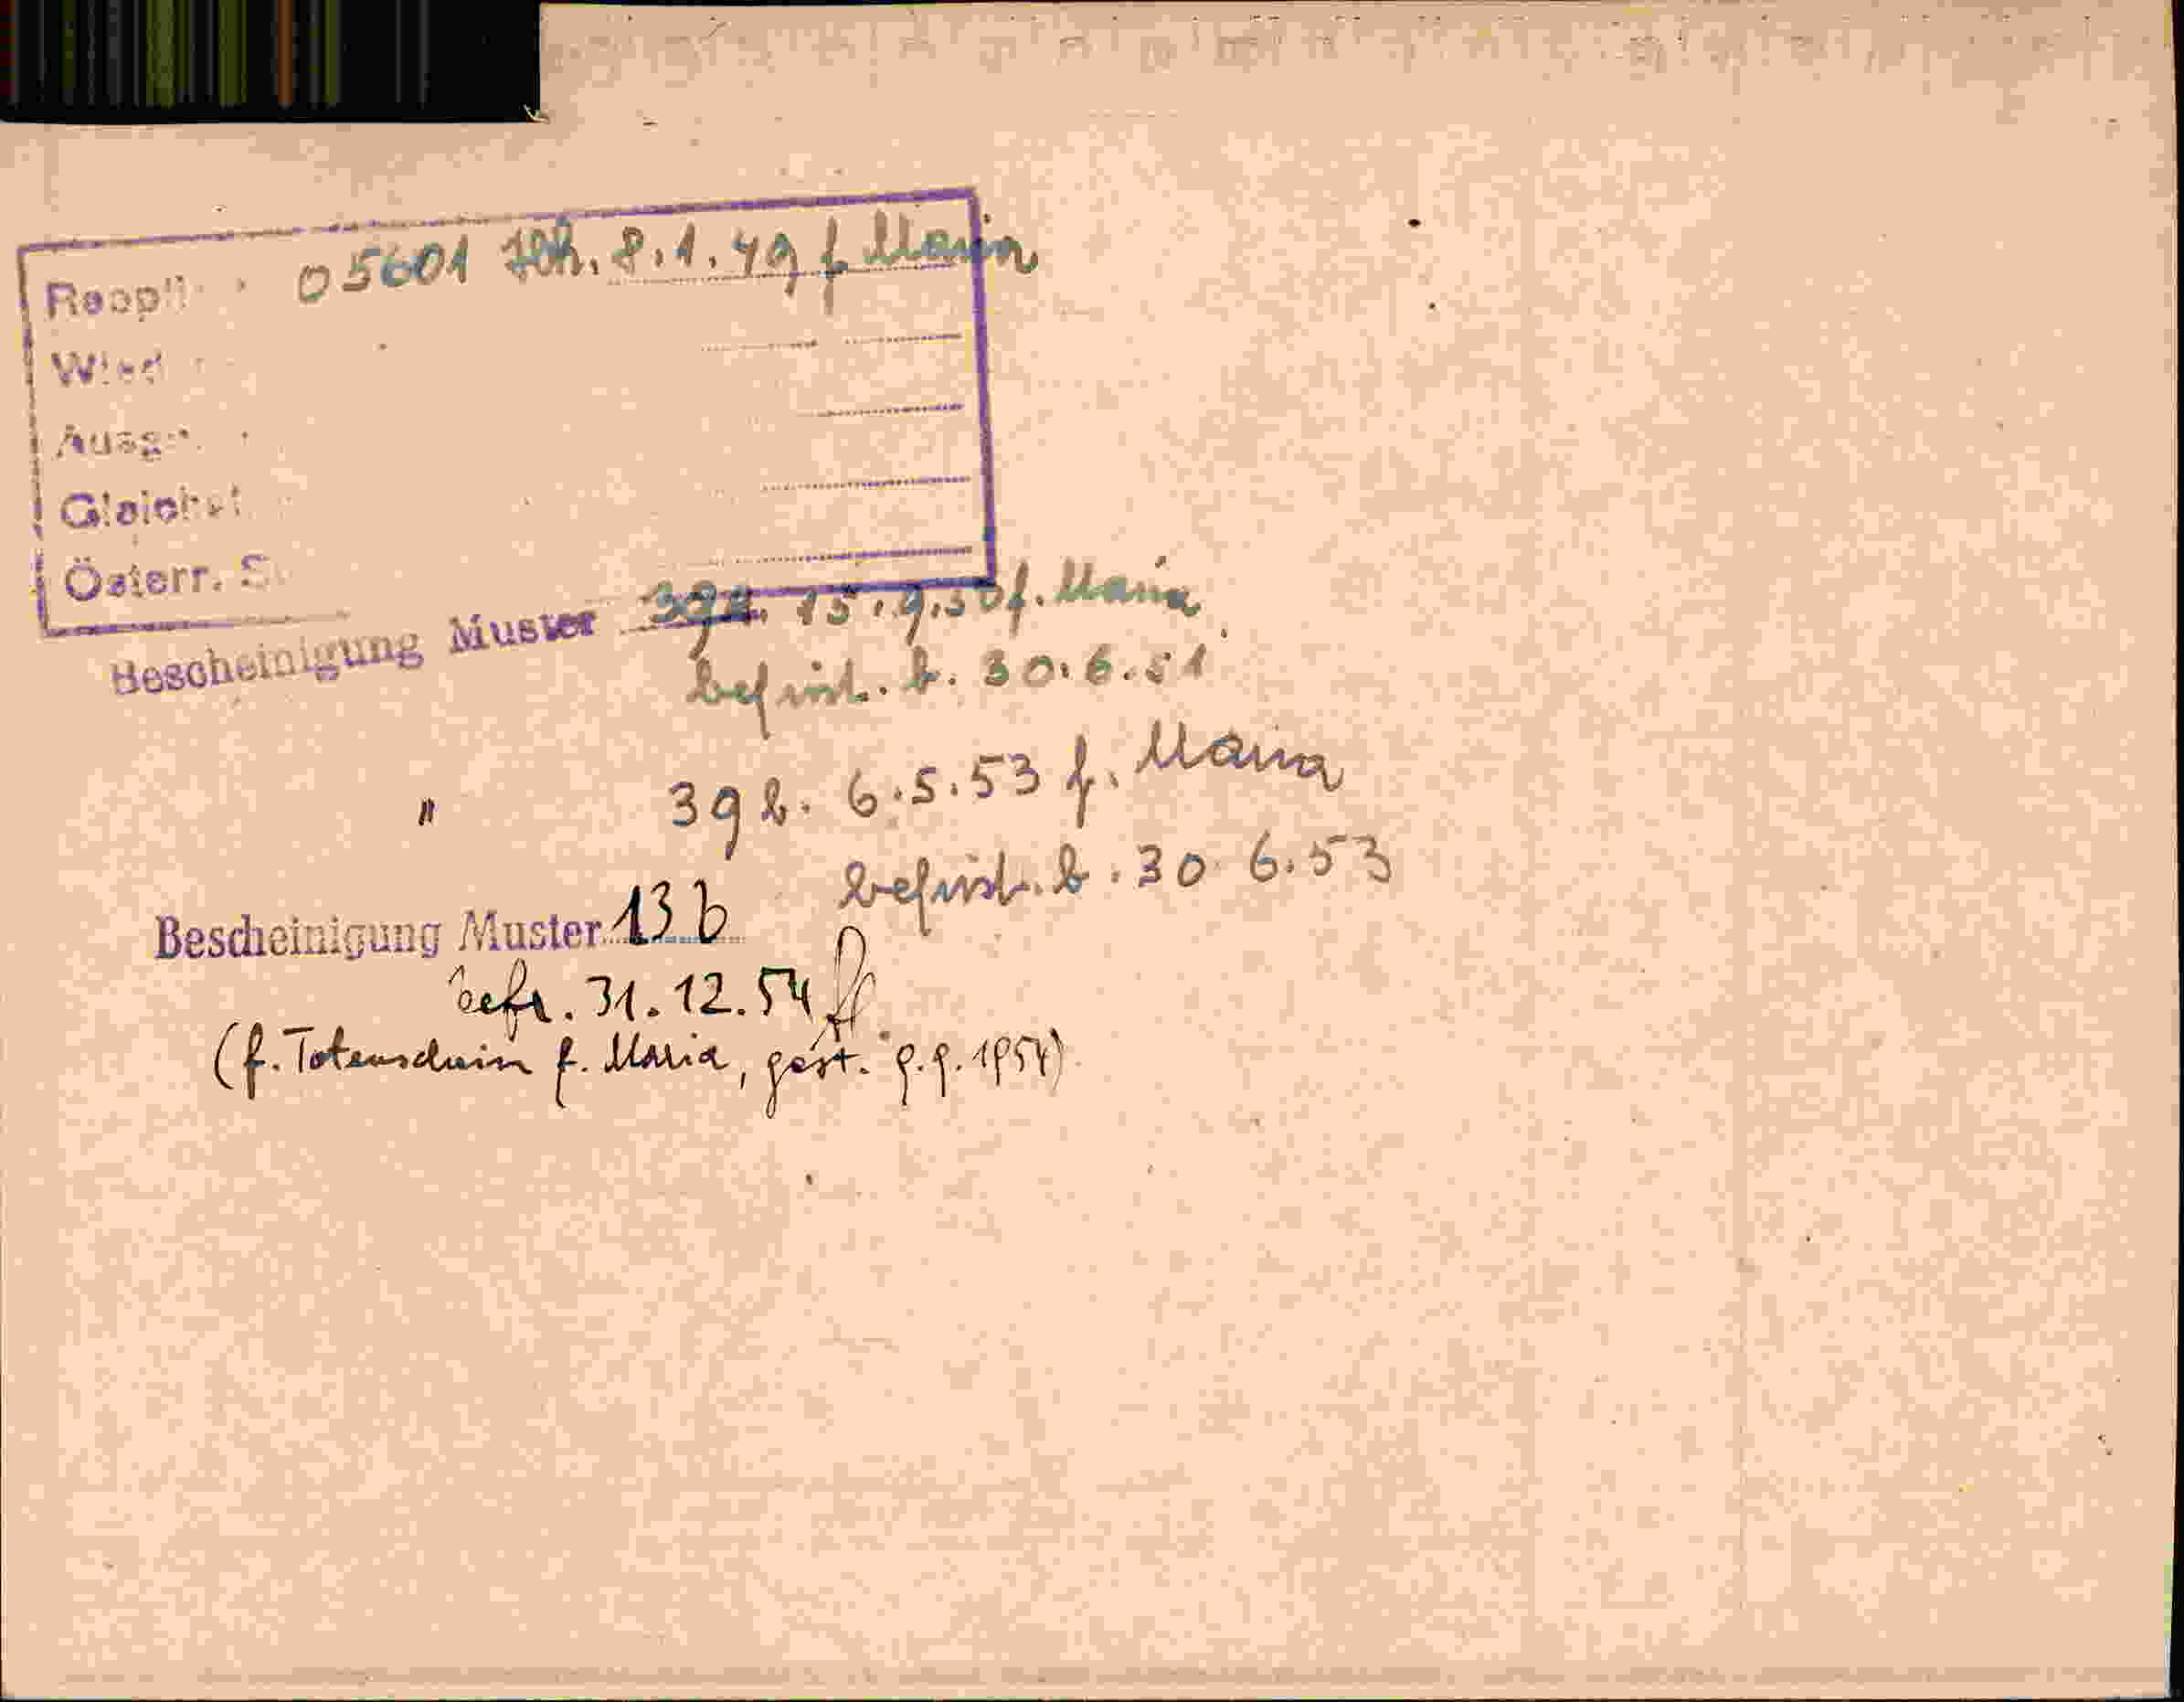 05601 8.1.49 f. Maria
Österr.
Bescheinigung Muster 15.9.50 f. Maria
befrist. b. 30.6.51
" 39b. 6.5.53 f. Maria
befrist. b. 30.6.53
Bescheinigung Muster 13b
befr. 31.12.54
(f. Totenschein f. Maria, gest. 9.9.1954)